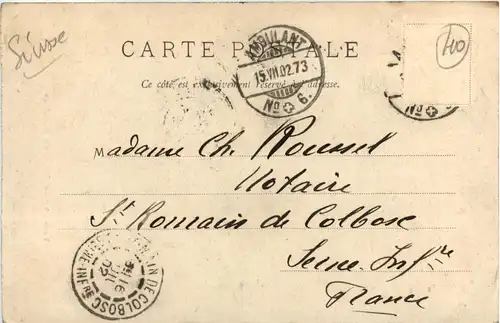 Suisse
CARTE POSTALE
40
Ce côté est exclusivement réservé à l'adresse.
AMBULANT
15.VII.02.73
No 6.
No 6.
Madame Ch. Roussel
Notaire
St Romain de Colbosc
Seine Infre
France
ST ROMAIN DE COLBOSC
SEINE-INFRE